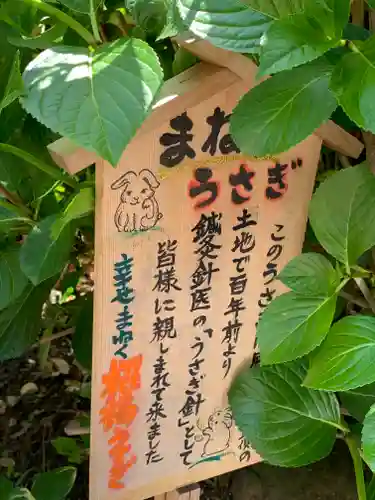 まね
うさぎ
このうさ
土地で百年前より
鍼灸針医の「うさぎ針」として
皆様に親しまれて来ました
幸せまねく
招福うさぎ